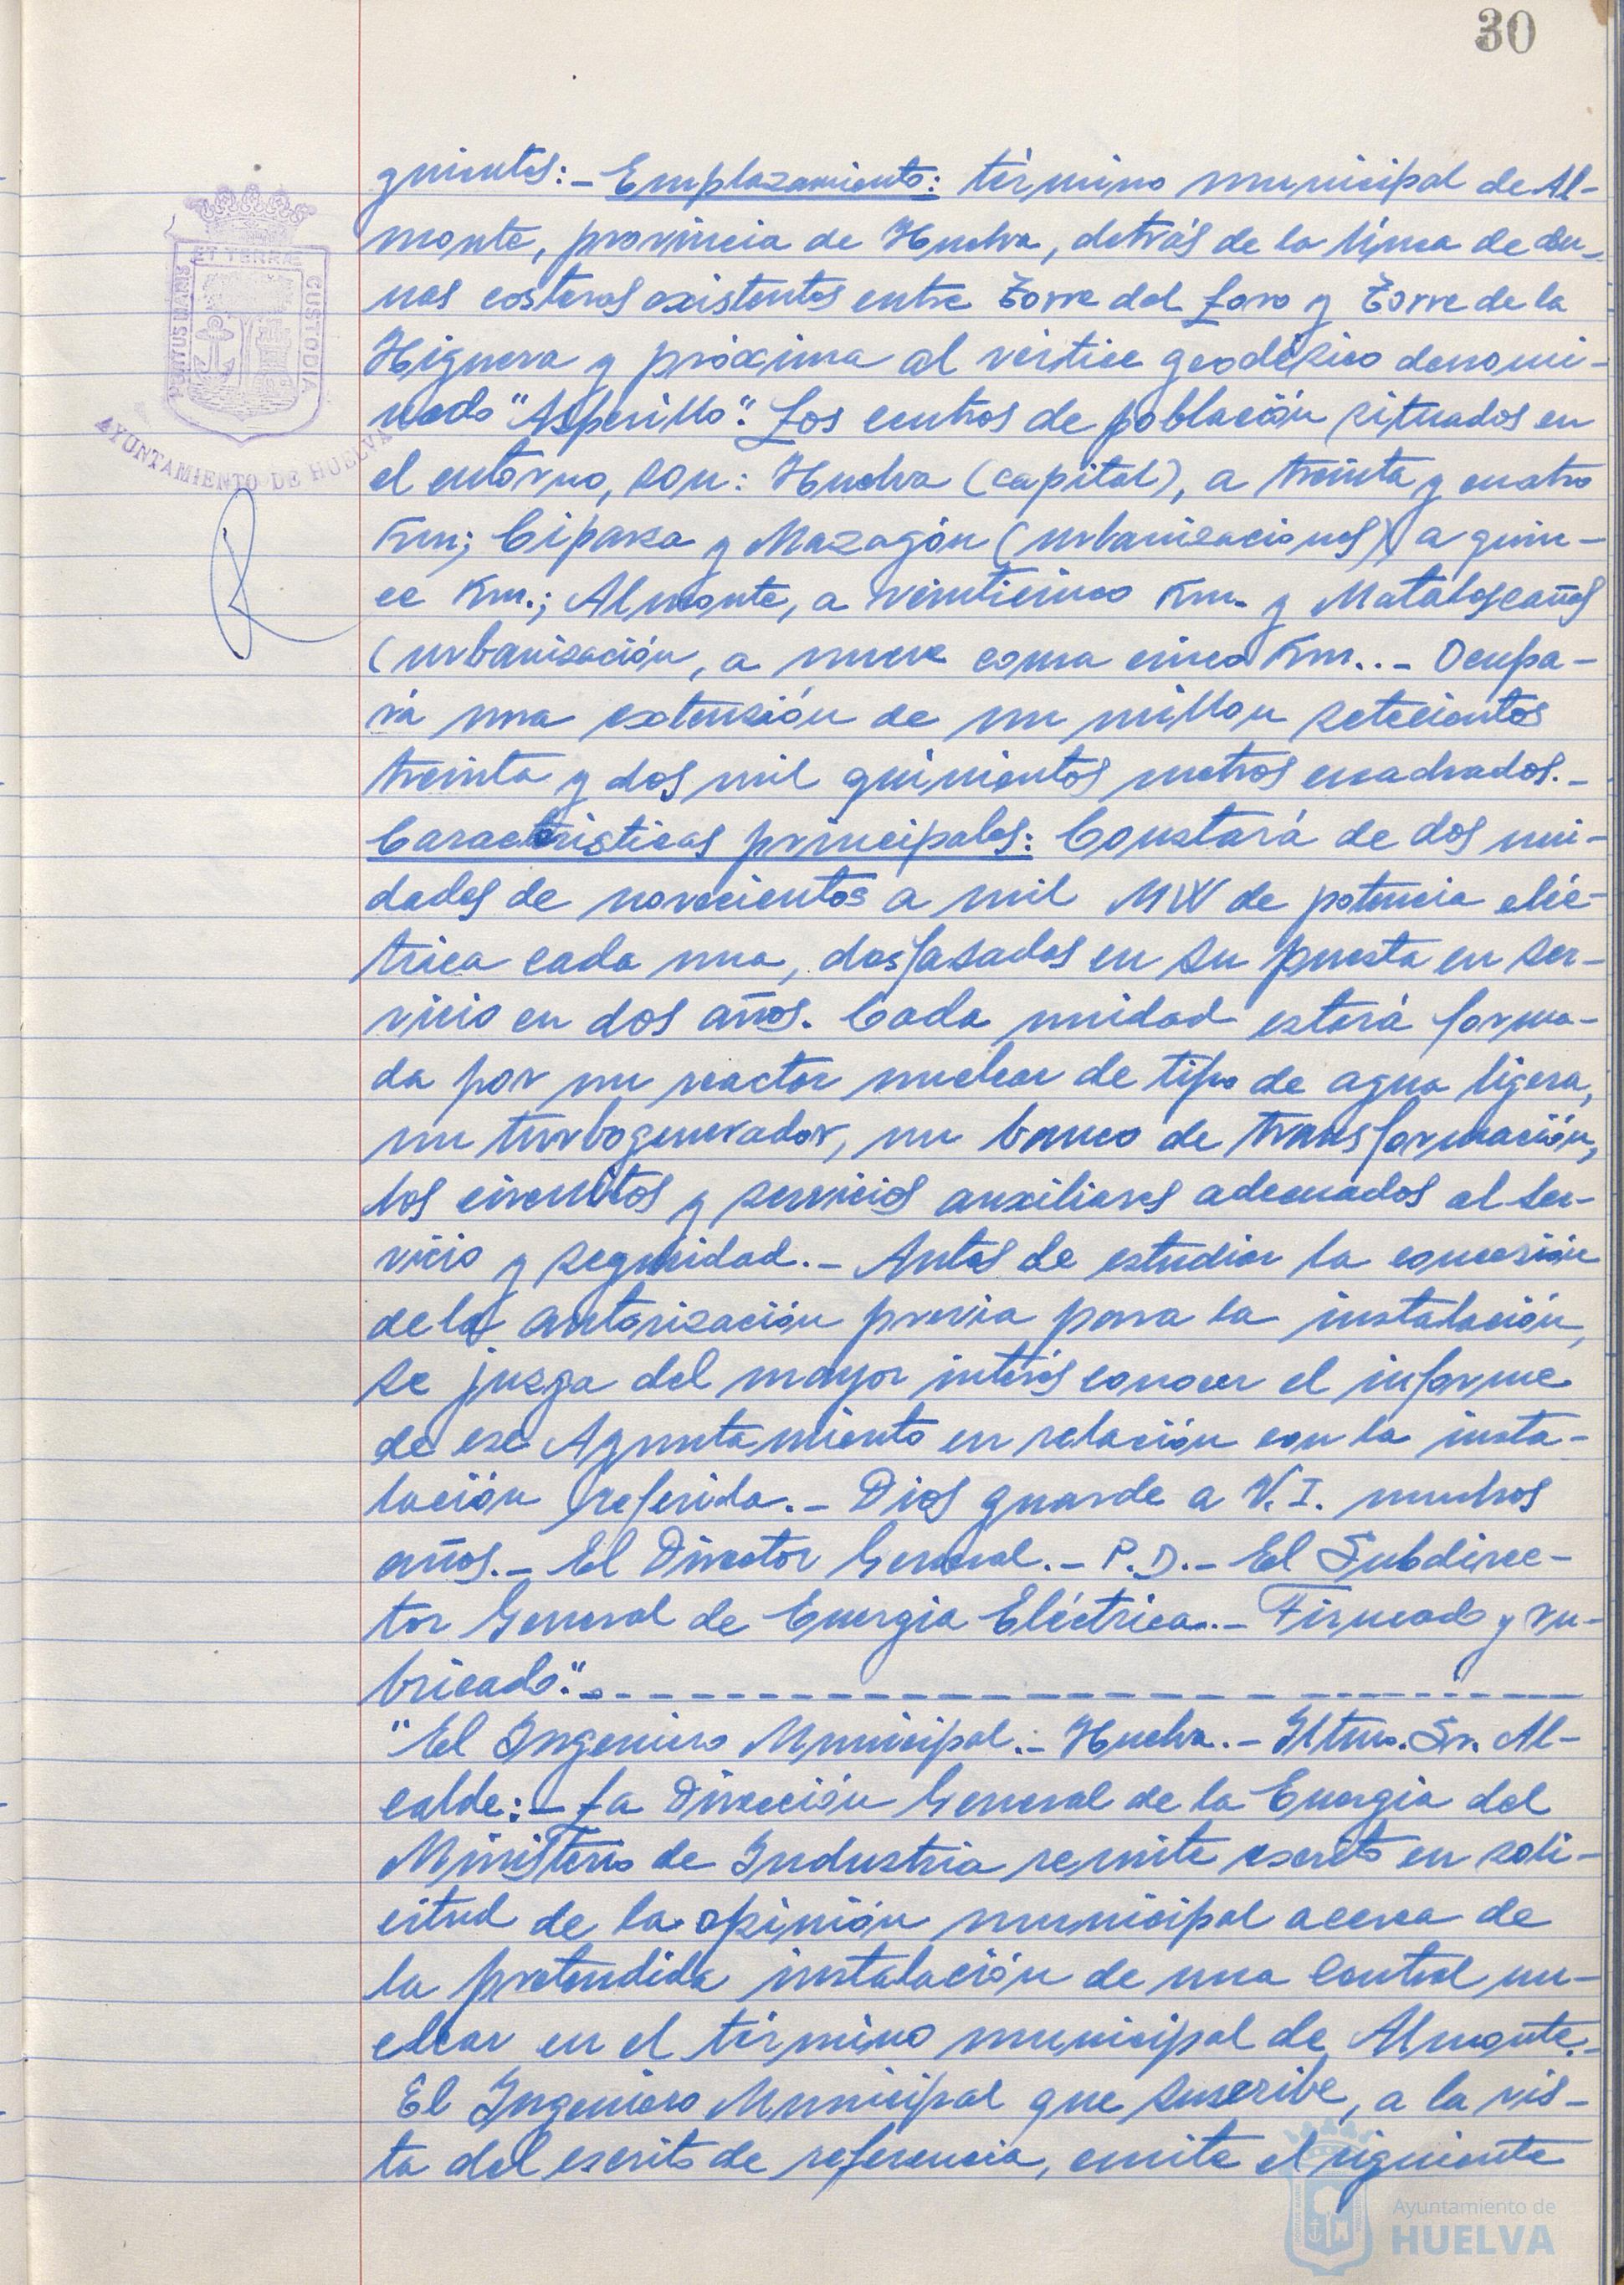 30
guientes:- Emplazamiento: término municipal de Al-
monte, provincia de Huelva, detrás de la línea de du-
nas costeras existentes entre Torre del Loro y Torre de la
Higuera y próxima al vértice geodésico denomi-
nado "Asperillo". Los centros de población situados en
el entorno, son: Huelva (capital), a treinta y cuatro
Km; Ciparsa y Mazagón (urbanizaciones) a quin-
ce Km.; Almonte, a veinticinco Km. y Matalascañas
(urbanización, a nueve coma cinco Km..- Ocupa-
rá una extensión de un millon setecientos
treinta y dos mil quinientos metros cuadrados.-
Características principales: Constará de dos uni-
dades de novecientos a mil MW de potencia eléc-
trica cada una, desfasados en su puesta en ser-
vicio en dos años. Cada unidad estará forma-
da por un reactor nuclear de tipo de agua ligera,
un turbogenerador, un banco de transformación,
los circuitos y servicios auxiliares adecuados al ser-
vicio y seguridad.- Antes de estudiar la concesión
de la autorización previa para la instalación,
se juzga del mayor interés conocer el informe
de ese Ayuntamiento en relación con la insta-
lación referida.- Dios guarde a V.I. muchos
años.- El Director General.- P.D.- El Subdirec-
tor General de Energía Eléctrica..- Firmado y ru-
bricado".-
"El Ingeniero Municipal.- Huelva.- Iltmo. Sr. Al-
calde:- La Dirección General de la Energía del
Ministerio de Industria remite escrito en soli-
citud de la opinión municipal acerca de
la pretendida instalación de una Central nu-
clear en el término municipal de Almonte.-
El Ingeniero Municipal que suscribe, a la vis-
ta del escrito de referencia, emite el siguiente
PORTUS MARIS
ET TERRAE
CUSTODIA
AYUNTAMIENTO DE HUELVA
Ayuntamiento de
HUELVA